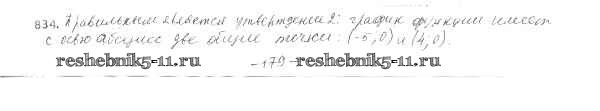 834. Правильным является утверждение 2: график функции имеет
с осью абсцисс две общие точки: (-5,0) и (4,0).
reshebnik5-11.ru -179- reshebnik5-11.ru